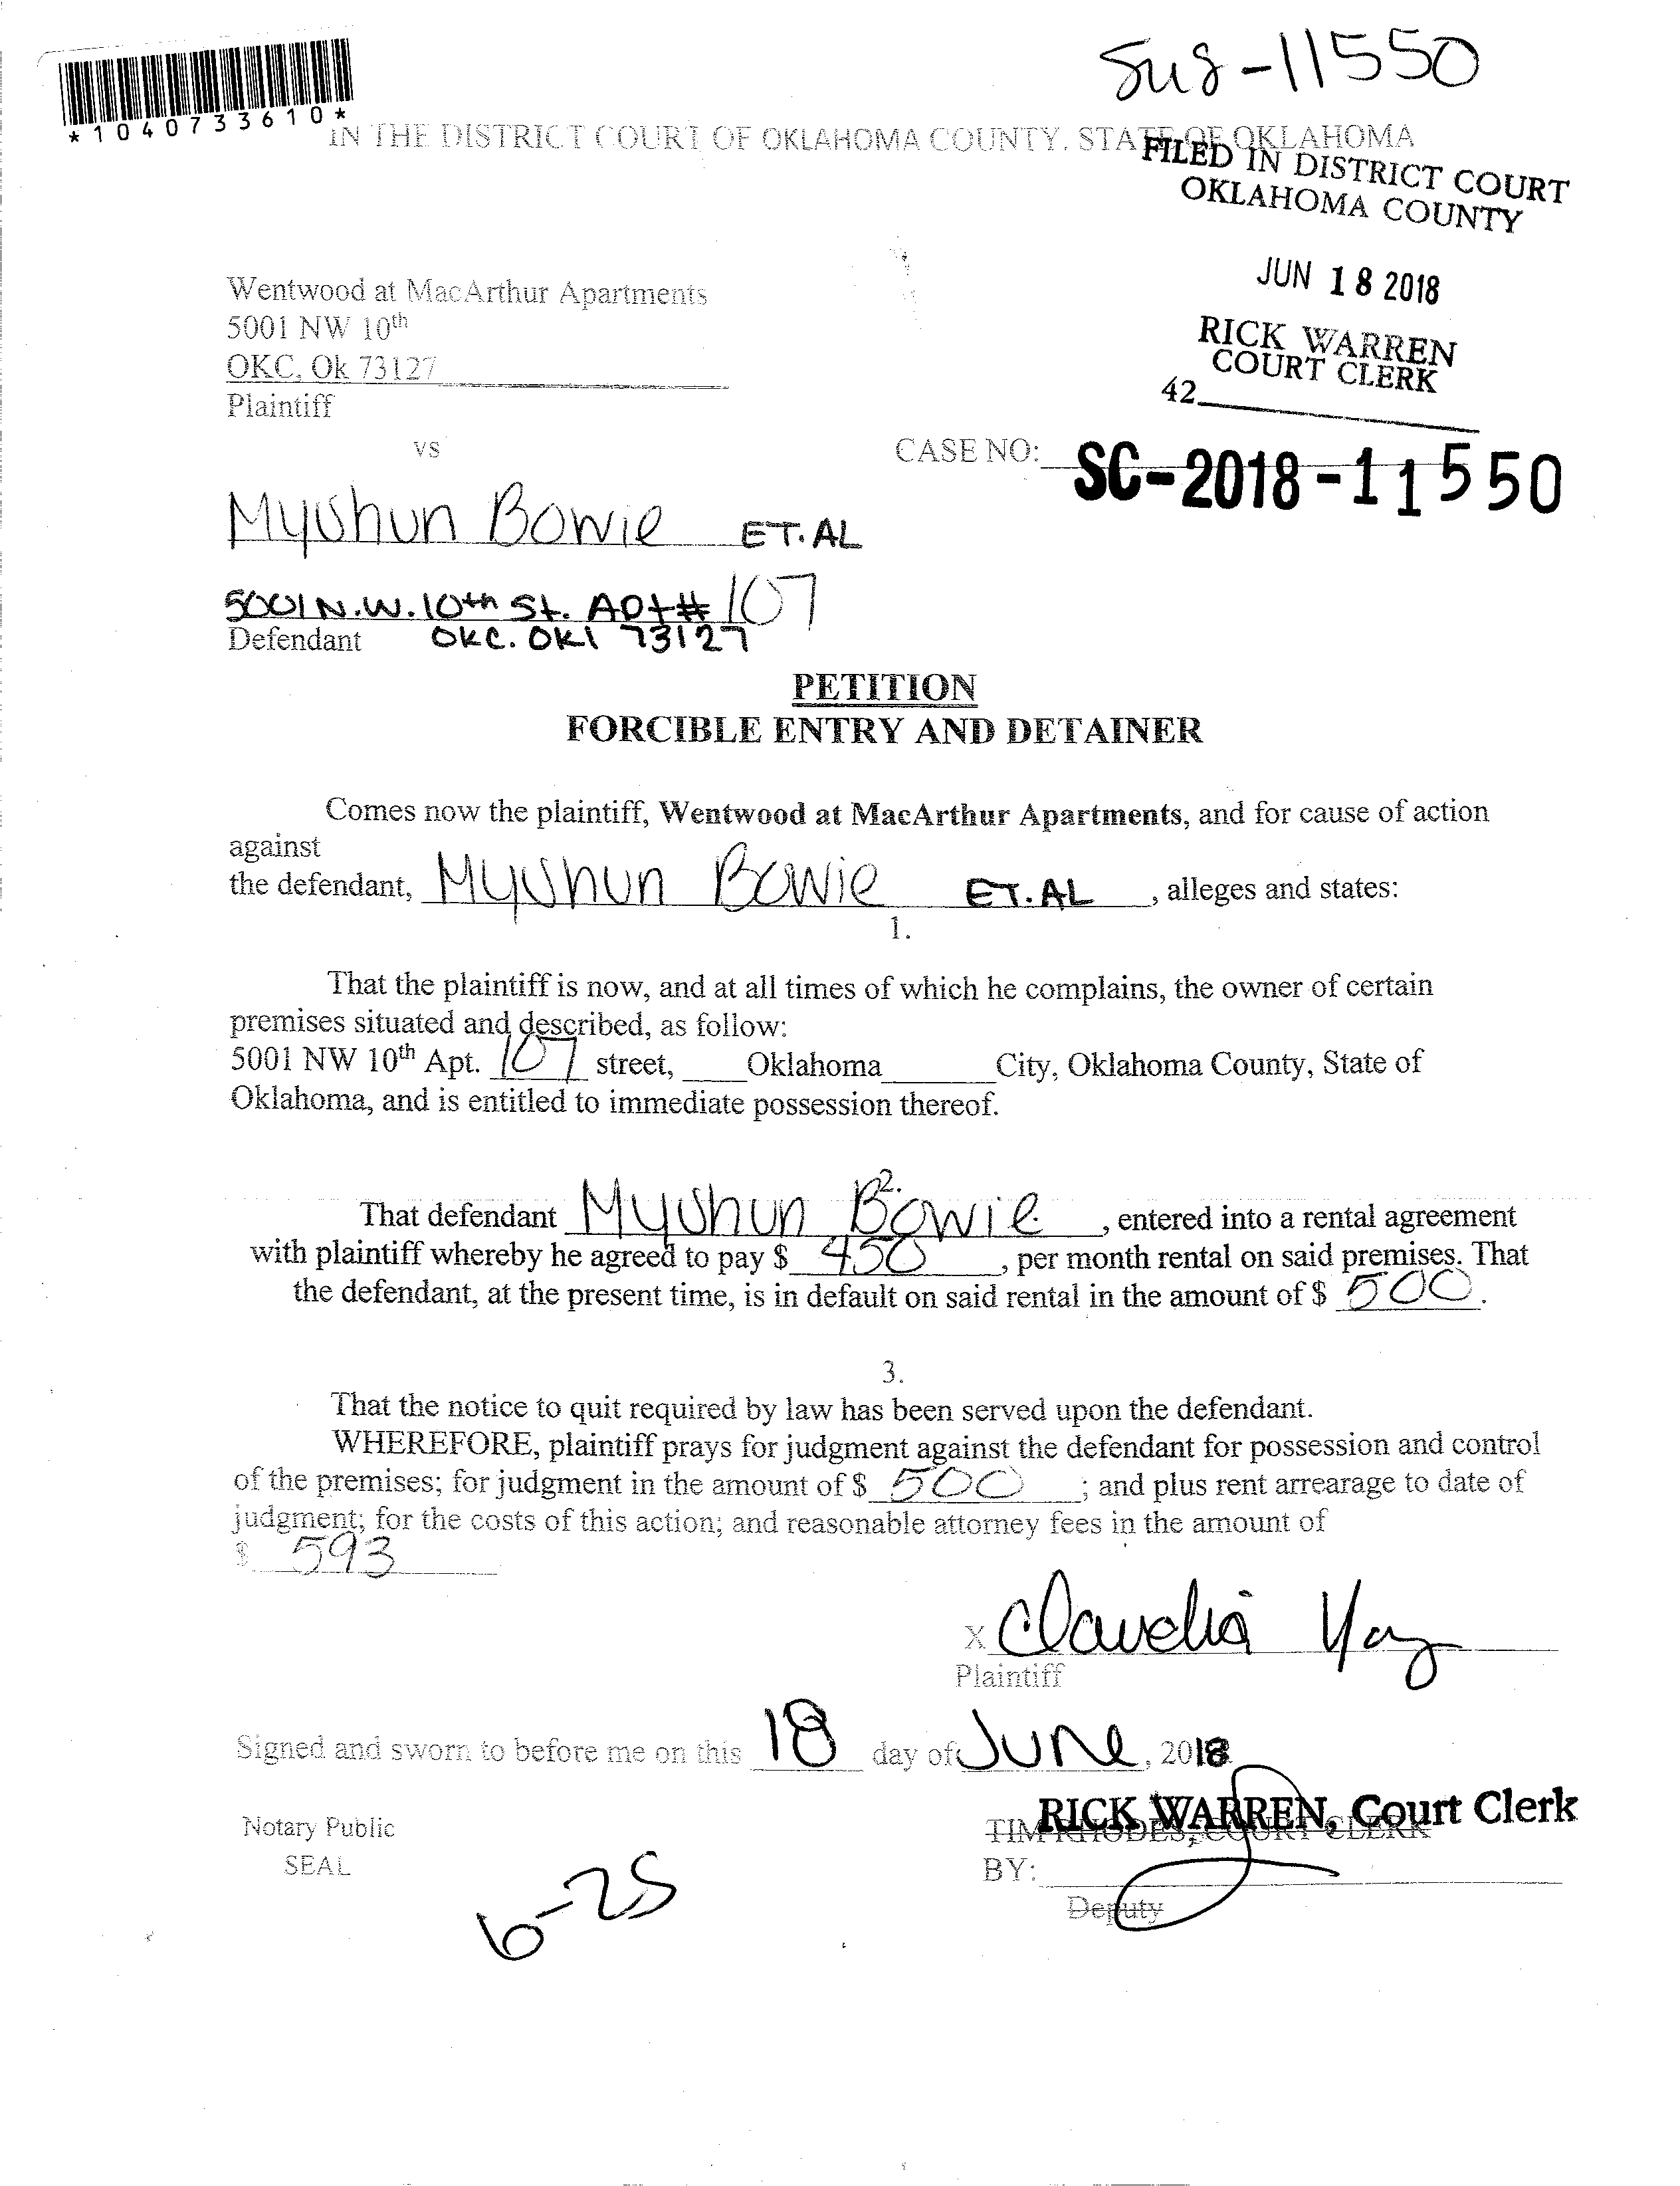 SC18-11550
*1040733610*
IN THE DISTRICT COURT OF OKLAHOMA COUNTY, STATE OF OKLAHOMA
FILED IN DISTRICT COURT
OKLAHOMA COUNTY
JUN 18 2018
RICK WARREN
COURT CLERK
42
Wentwood at MacArthur Apartments
5001 NW 10th
OKC, Ok 73127
Plaintiff
vs
CASE NO: SC-2018-11550
Myushun Bowie ET.AL
5001 N.W. 10th St. Apt# 107
Defendant OKC. OKl 73127
PETITION
FORCIBLE ENTRY AND DETAINER
Comes now the plaintiff, Wentwood at MacArthur Apartments, and for cause of action
against
the defendant, Myushun Bowie ET.AL , alleges and states:
1.
That the plaintiff is now, and at all times of which he complains, the owner of certain
premises situated and described, as follow:
5001 NW 10th Apt. 107 street, Oklahoma City, Oklahoma County, State of
Oklahoma, and is entitled to immediate possession thereof.
2.
That defendant Myushun Bowie , entered into a rental agreement
with plaintiff whereby he agreed to pay $ 450 , per month rental on said premises. That
the defendant, at the present time, is in default on said rental in the amount of $ 500.
3.
That the notice to quit required by law has been served upon the defendant.
WHEREFORE, plaintiff prays for judgment against the defendant for possession and control
of the premises; for judgment in the amount of $ 500 ; and plus rent arrearage to date of
judgment; for the costs of this action; and reasonable attorney fees in the amount of
$ 593
x Claudia
Plaintiff
Signed and sworn to before me on this 18 day of June, 2018
RICK WARREN, Court Clerk
Notary Public
TIM RHODES, COURT CLERK
SEAL
BY:
Deputy
6-25